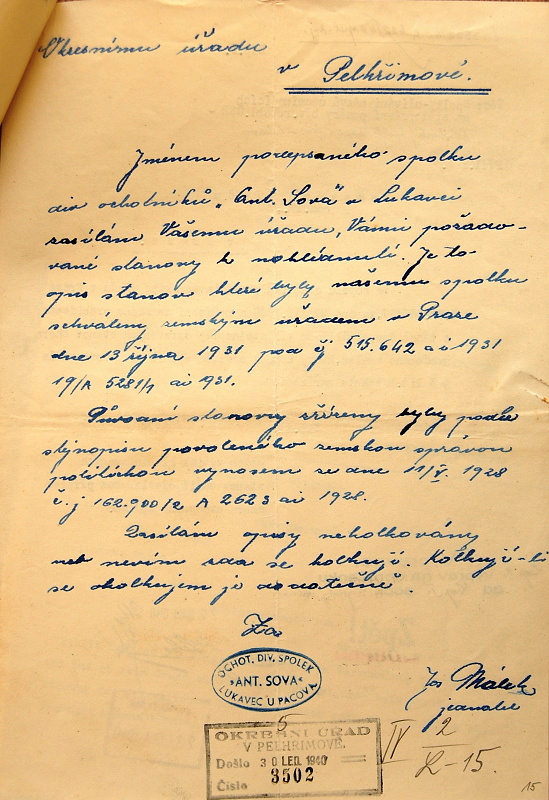 Okresnímu úřadu
v Pelhřimově.
Jménem podepsaného spolku
div. ochotníků „Ant. Sova" v Lukavci
zasílám Vašemu úřadu, Vámi požado-
vané stanovy k nahlédnutí. Je to
opis stanov které byly našemu spolku
schváleny zemským úřadem v Praze
dne 13 října 1931 pod čj 515.642 ai 1931
19/A 5281/1 ai 1931.
Původní stanovy zřízeny byly podle
stejnopisu povoleného zemskou správou
politickou vynosem ze dne 11/V. 1928
č.j 162.900/2 A 2623 ai 1928.
Zasílám opisy nekolkovány
neb nevím zda se kolkují. Kolkují-li
se okolkujem je dodatečně.
Za
OCHOT. DIV. SPOLEK
»ANT. SOVA«
LUKAVEC U PACOVA
Jos Málek
jednatel
5
OKRESNÍ ÚŘAD
V PELHŘIMOVĚ.
Došlo 30 LED. 1940
Číslo 3502
IV 2
L-15.
15